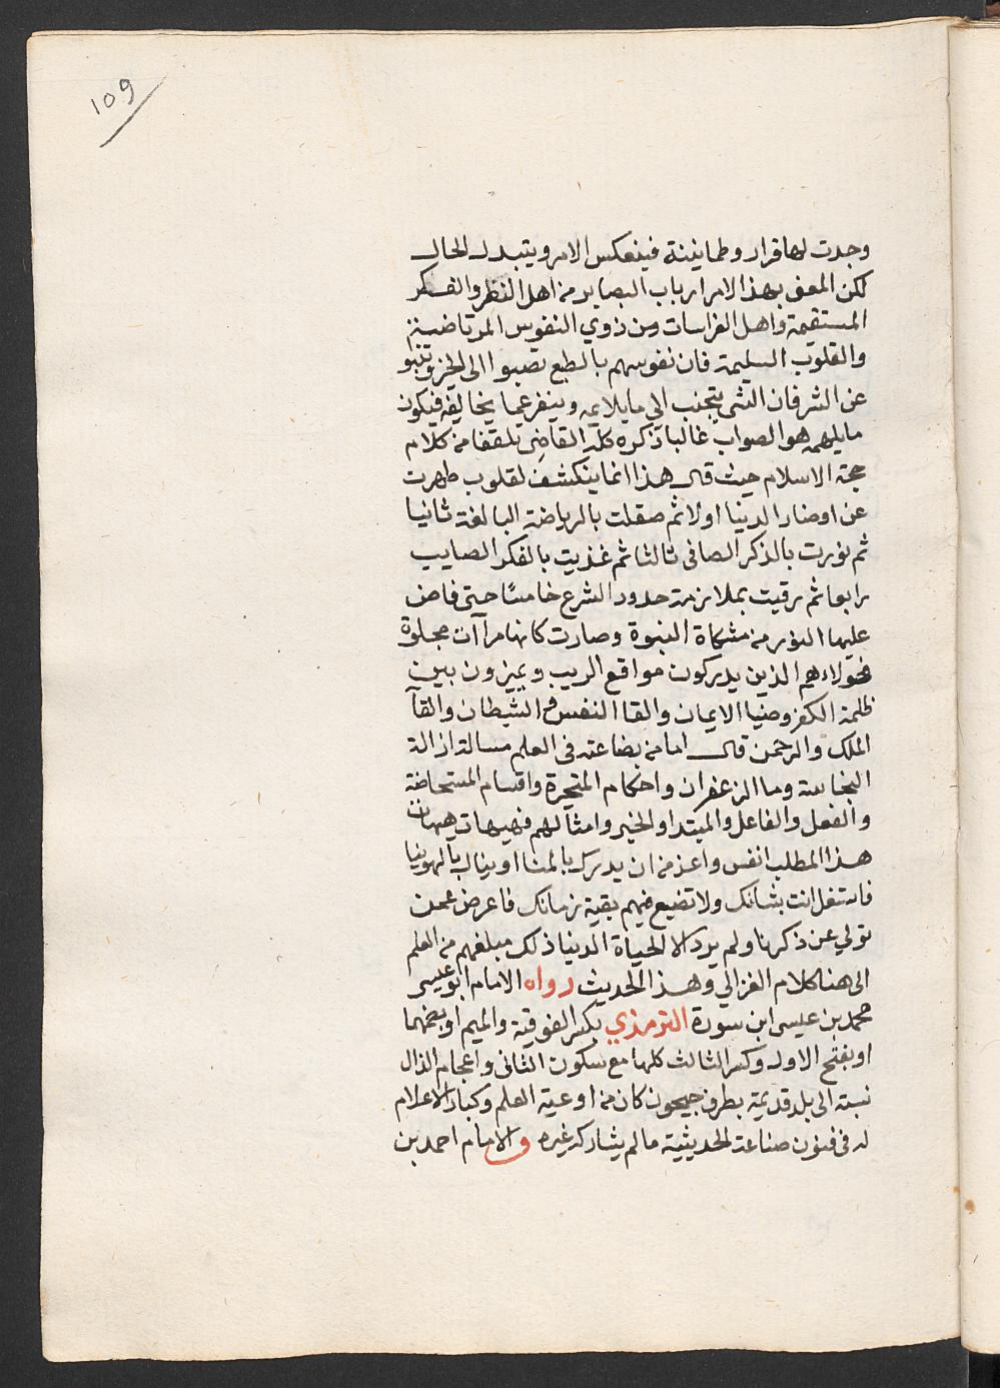 109
وجدت لها قرار وطمانينة فينعكس الامر ويتبدل الحال
لكن المعنى بهذا الامر ارباب البصاير من اهل النظر والفكر
المستقيمة واهل الفراسات ومن ذوي النفوس المرتاضين
والقلوب السليمة فان نفوسهم بالطبع تصبوا الى الخير وتنبو
عن الشر فان الشي ينجذب الي ما يلايمه وينفر عما يخالفه فيكون
ما يلهمه هو الصواب غالبا ذكره كله القاضي تلقفا من كلام
حجة الاسلام حيث قال هذا انما ينكشف لقلوب طهرت
عن اوضار الدنيا اولا ثم صقلت بالرياضة البالغة ثانيا
ثم نورت بالذكر الصافى ثالثا ثم غذيت بالفكر الصايب
رابعا ثم رقيت بملازمة حدود الشرع خامسًا حتى فاض
عليها النور من مشكاة النبوة وصارت كانها مرآات مجلوة
فهولاء هم الذين يدركون مواقع الريب ويميزون بين
ظلمة الكفر وضيا الايمان والقا النفس والشيطان والقآ
الملك والرحمن قال اما من بضاعته فى العلم مسالة ازالة
النجاسة وما الزعفران واحكام المتحيرة واقسام المستحاضة
والفعل والفاعل والمبتدا والخبر وامثالهم فهيهات هيهات
هذا المطلب انفس واعز من ان يدرك بالمنا او ينال بالهوينا
فاشتغل انت بشانك ولا تضيع فيهم بقية زمانك فاعرض عمن
تولي عن ذكرنا ولم يرد الا الحياة الدنيا ذلك مبلغهم من العلم
الى هنا كلام الغزالي وهذا الحديث رواه الامام ابو عيسى
محمد بن عيسى ابن سورة الترمذي بكسر الفوقية والميم او بضمهما
او بفتح الاول وكسر الثالث كلها مع سكون الثانى واعجام الذال
نسبة الى بلد قديمة بطرف جيحون كان من اوعية العلم وكبار الاعلام
له فى فنون صناعة الحديثية ما لم يشاركه غيره والامام احمد بن